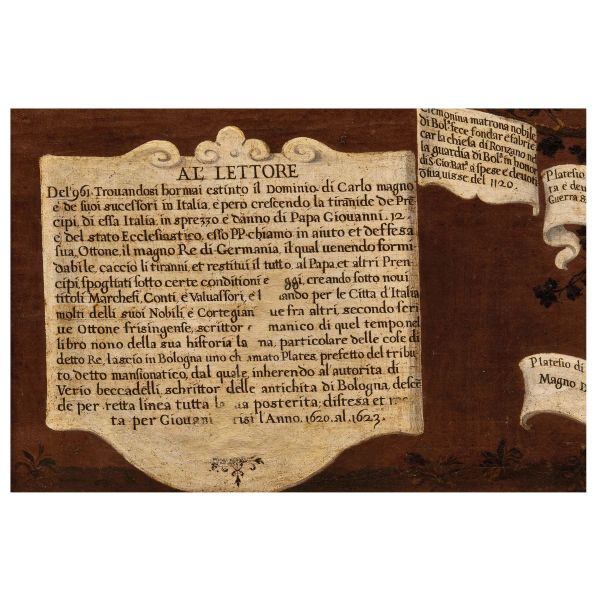 AL' LETTORE
Del' 961. Trouandosi hormai estinto il Dominio di Carlo magno
e de suoi sucessori in Italia, e pero crescendo la tiranide de Pre
cipi, di essa Italia, in sprezzo e danno di Papa Giouanni. 12.
e del stato Ecclesiastico, esso PP. chiamo in aiuto et deffesa
sua, Ottone, il magno Re di Germania, il qual uenendo formi
dabile, caccio li tiranni, et restitui il tutto, al Papa et altri Pren
cipi, spogliati, sotto certe conditioni e ggi, creando sotto noui
titoli Marchesi, Conti, e Valuassori, e l ando per le Citta d'Italia
molti delli suoi Nobili, e Cortegian ue fra altri, secondo scri
ue Ottone frisingense, scrittor e manico di quel tempo, nel
libro nono della sua historia la na, particolare delle cose di
detto Re, lascio in Bologna uno ch amato Plates, prefetto del tribu
to, detto mansionatico, dal quale, inherendo al autorita di
Verio beccadelli, schrittor delle antichita di Bologna, desce
de per retta linea tutta la posterita; distesa et
ta per Giouan risi l'Anno. 1620. al. 1623.
Cremonina matrona nobile
di Bol.ª fece fondar e fabric
car la chiesa di Ronzano nel
la guardia di Bol.ª in honor
di S. Gio. Bat.ª a spese e deuoti
sua, uisse del 1120.
Platesio di
ta e deuo
Guerra
Platesio di
Magno